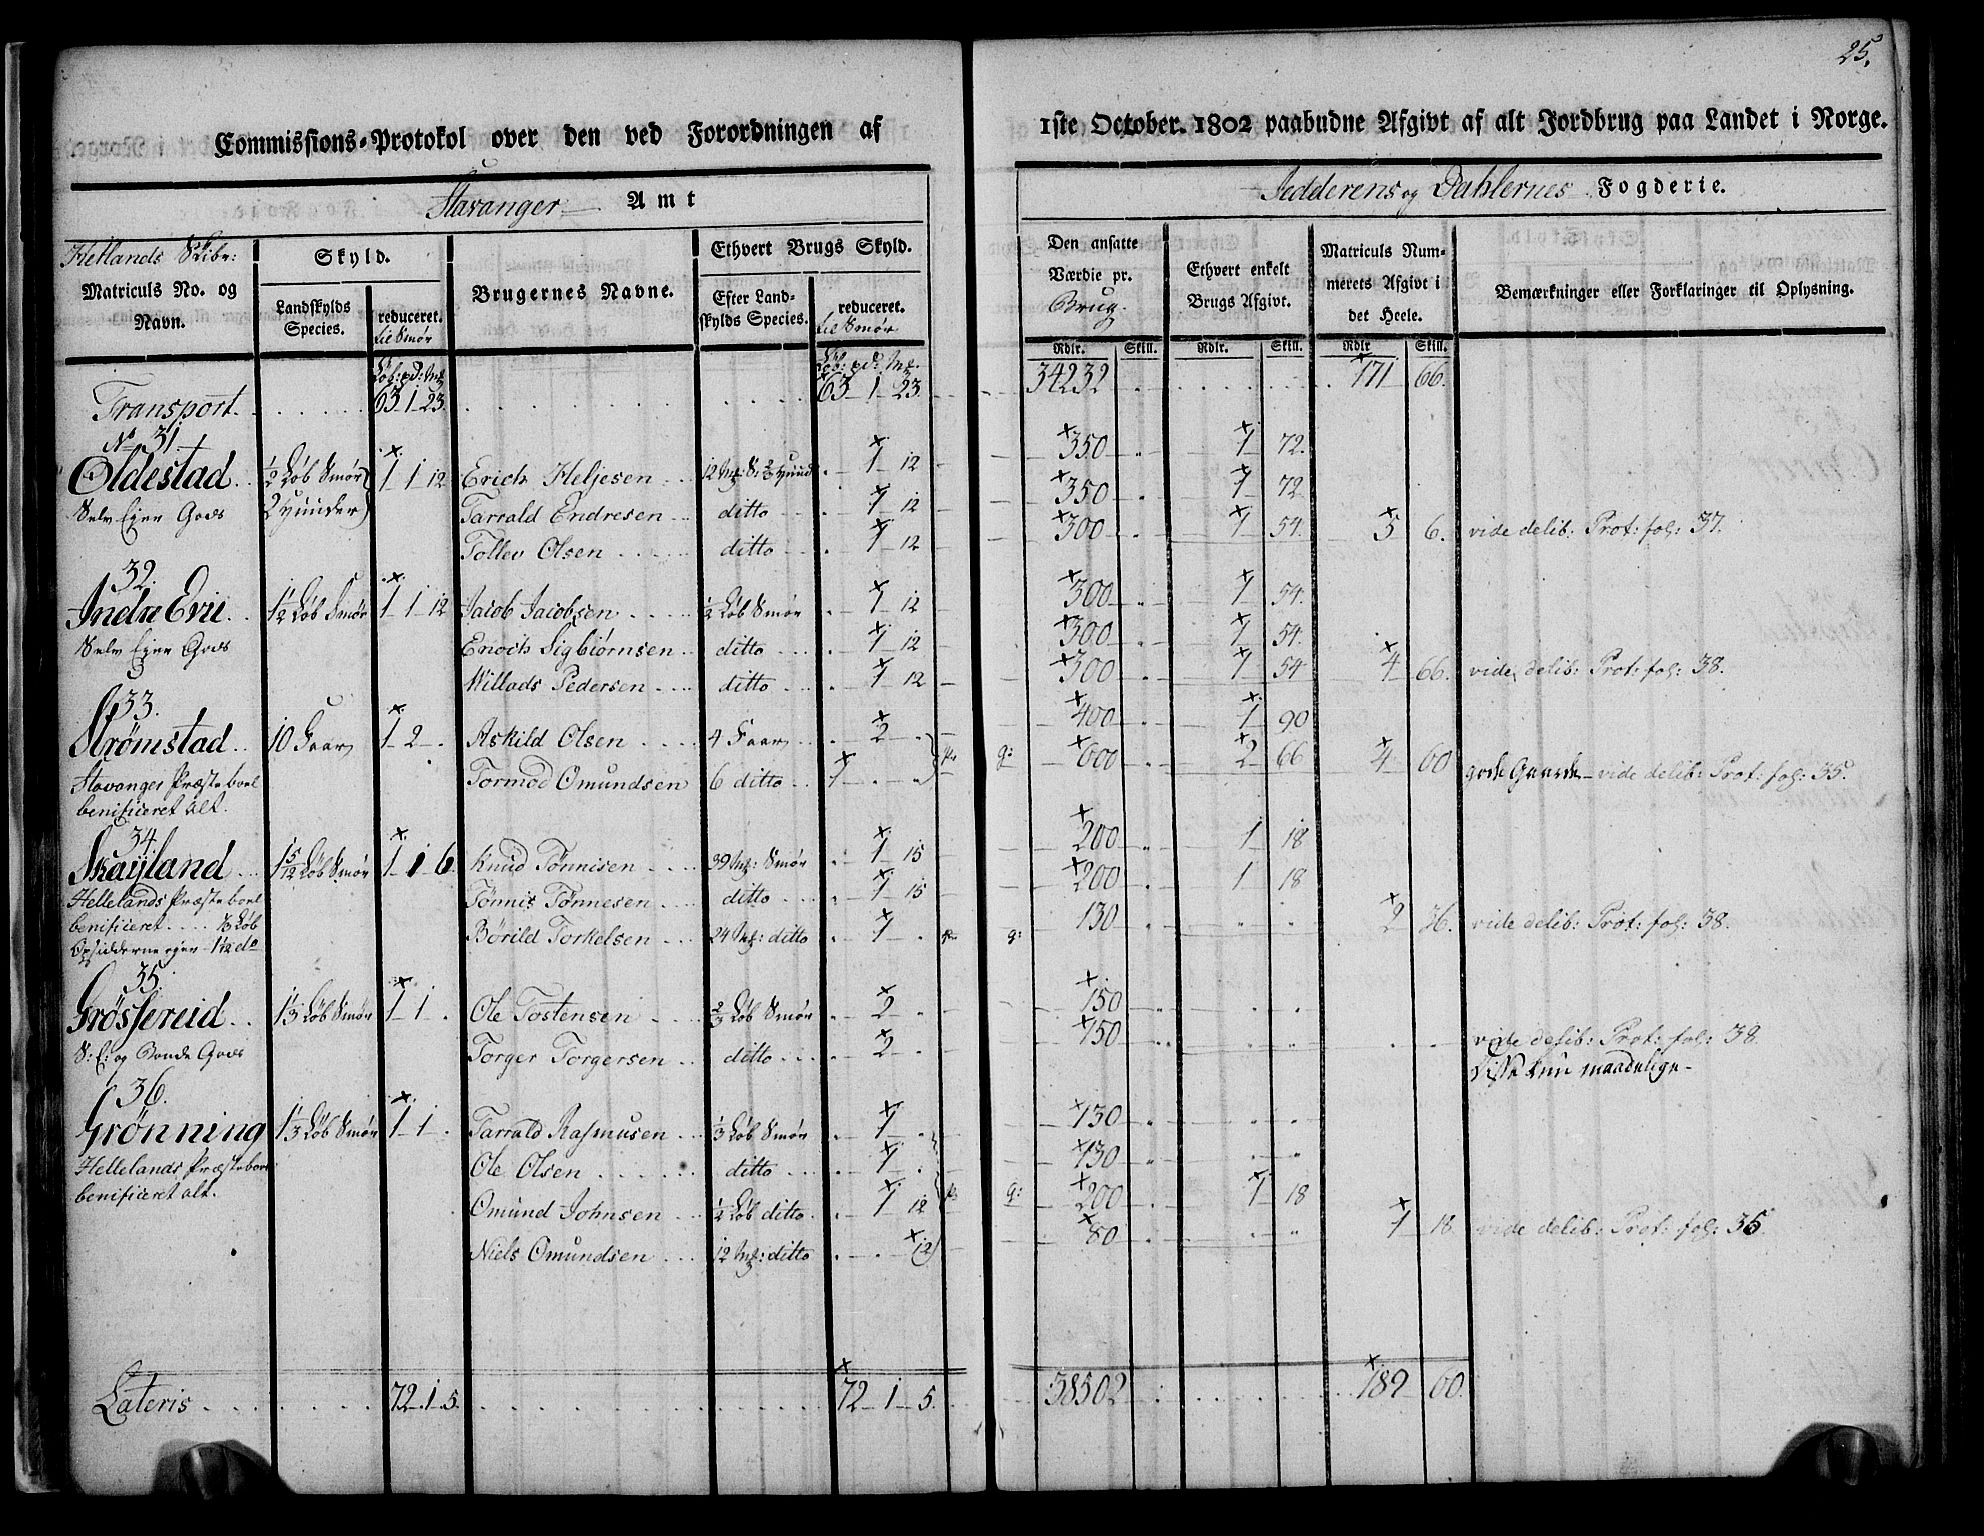 25.
Commissions-Protokol over den ved Forordningen af 1ste October. 1802 paabudne Afgivt af alt Jordbrug paa Landet i Norge.
Stavanger Amt
Jedderens og Dahlernes Fogderie.
Hetlands Skibr:
Matriculs No. og Navn.
Skyld.
Landskylds Species.
reduceret. til Smør
Brugernes Navne.
Ethvert Brugs Skyld.
Efter Landskylds Species.
reduceret. til Smør
Den ansatte Værdie pr. Brug.
Ethvert enkelt Brugs Afgivt.
Matriculs Nummerets Afgivt i det Heele.
Bemærkninger eller Forklaringer til Oplysning.
Løb: pd: Mk Løb: pd: Mk. Rdlr. Skill. Rdlr. Skill. Rdlr Skill.
Transport. 63 1 23 63 1 23. 34232 171 66.
No 31.
Oldestad. 1/2 Løb Smør 1 1 12 Erich Heljesen 12 Mk: S: 2/3 hund 1 12 350 1 72.
Selv Eyer Gods 2 hunder Tarrald Endresen ditto 1 12 350 1 72
Tollev Olsen ditto 1 12 300 1 54. 5 6. vide delib: Prot: fol: 37.
32.
Indre Evie. 1 1/2 Løb Smør 1 1 12 Jacob Jacobsen 1/2 Løb Smør 1 12 300 1 54.
Selv Eyer Gods Enoch Sigbiørnsen ditto 1 12 300 1 54.
Willads Pedersen ditto 1 12 300 1 54 4 66. vide delib: Prot: fol: 38.
33.
Strømstad. 10 Faar 1 2 Askild Olsen 4 Faar 2 400 1 90
Stavanger Præsteboel Tormod Omundsen 6 ditto 1 q: 600 2 66 4 60 gode Gaarde vide delib: Prot: fol: 35.
benificeret alt.
34.
Skayland 1 5/12 Løb Smør 1 1 6 Knud Tønnisen 39 Mk: Smør 1 15 200 1 18
Hellelands Præsteboel Tønnis Tønnesen ditto 1 15 200 1 18
benificeret 1/3 Løb Børild Torkelsen 24 Mk: ditto 1 q: 130 2 36. vide delib: Prot: fol: 38.
Opsidderne eger 1 1/12 do
35.
Grøssereid 1 1/3 Løb Smør 1 1 Ole Tostensen 2/3 Løb Smør 2 150
S: E: og Bonde Gods Torger Torgersen ditto 2 150 vide delib: Prot: fol: 38.
Disse kun maadelige
36.
Grønning 1 1/3 Løb Smør 1 1 Tarrald Rasmusen 1/3 Løb Smør 1 130
Hellelands Præsteboel Ole Olsen ditto 1 130
benificeret alt. Omund Johnsen 1/2 Løb ditto 1 12 q: 200 1 18
Niels Omundsen 12 Mk: ditto 12 80 1 18 vide delib: Prot: fol: 35
Lateris 72 1 5. 72 1 5. 38502 189 60.